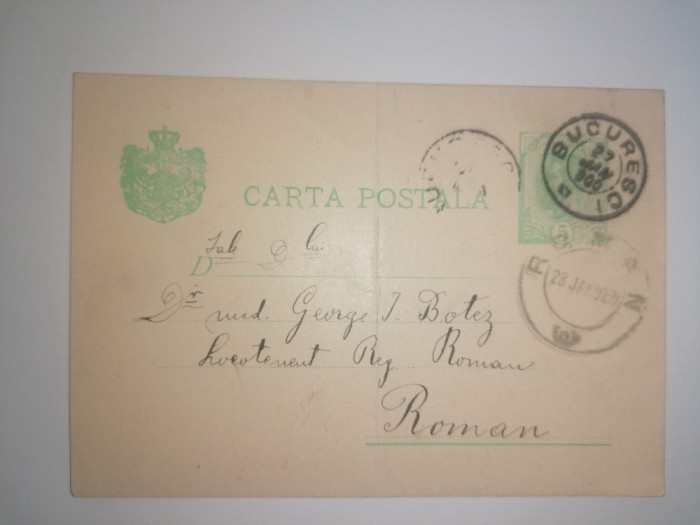 CARTA POSTALA
BUCURESCI
27
JAN
900
5
ROMAN
28 JAN 900
D
Dr med. George I. Botez
Locotenent Reg. Roman
Roman